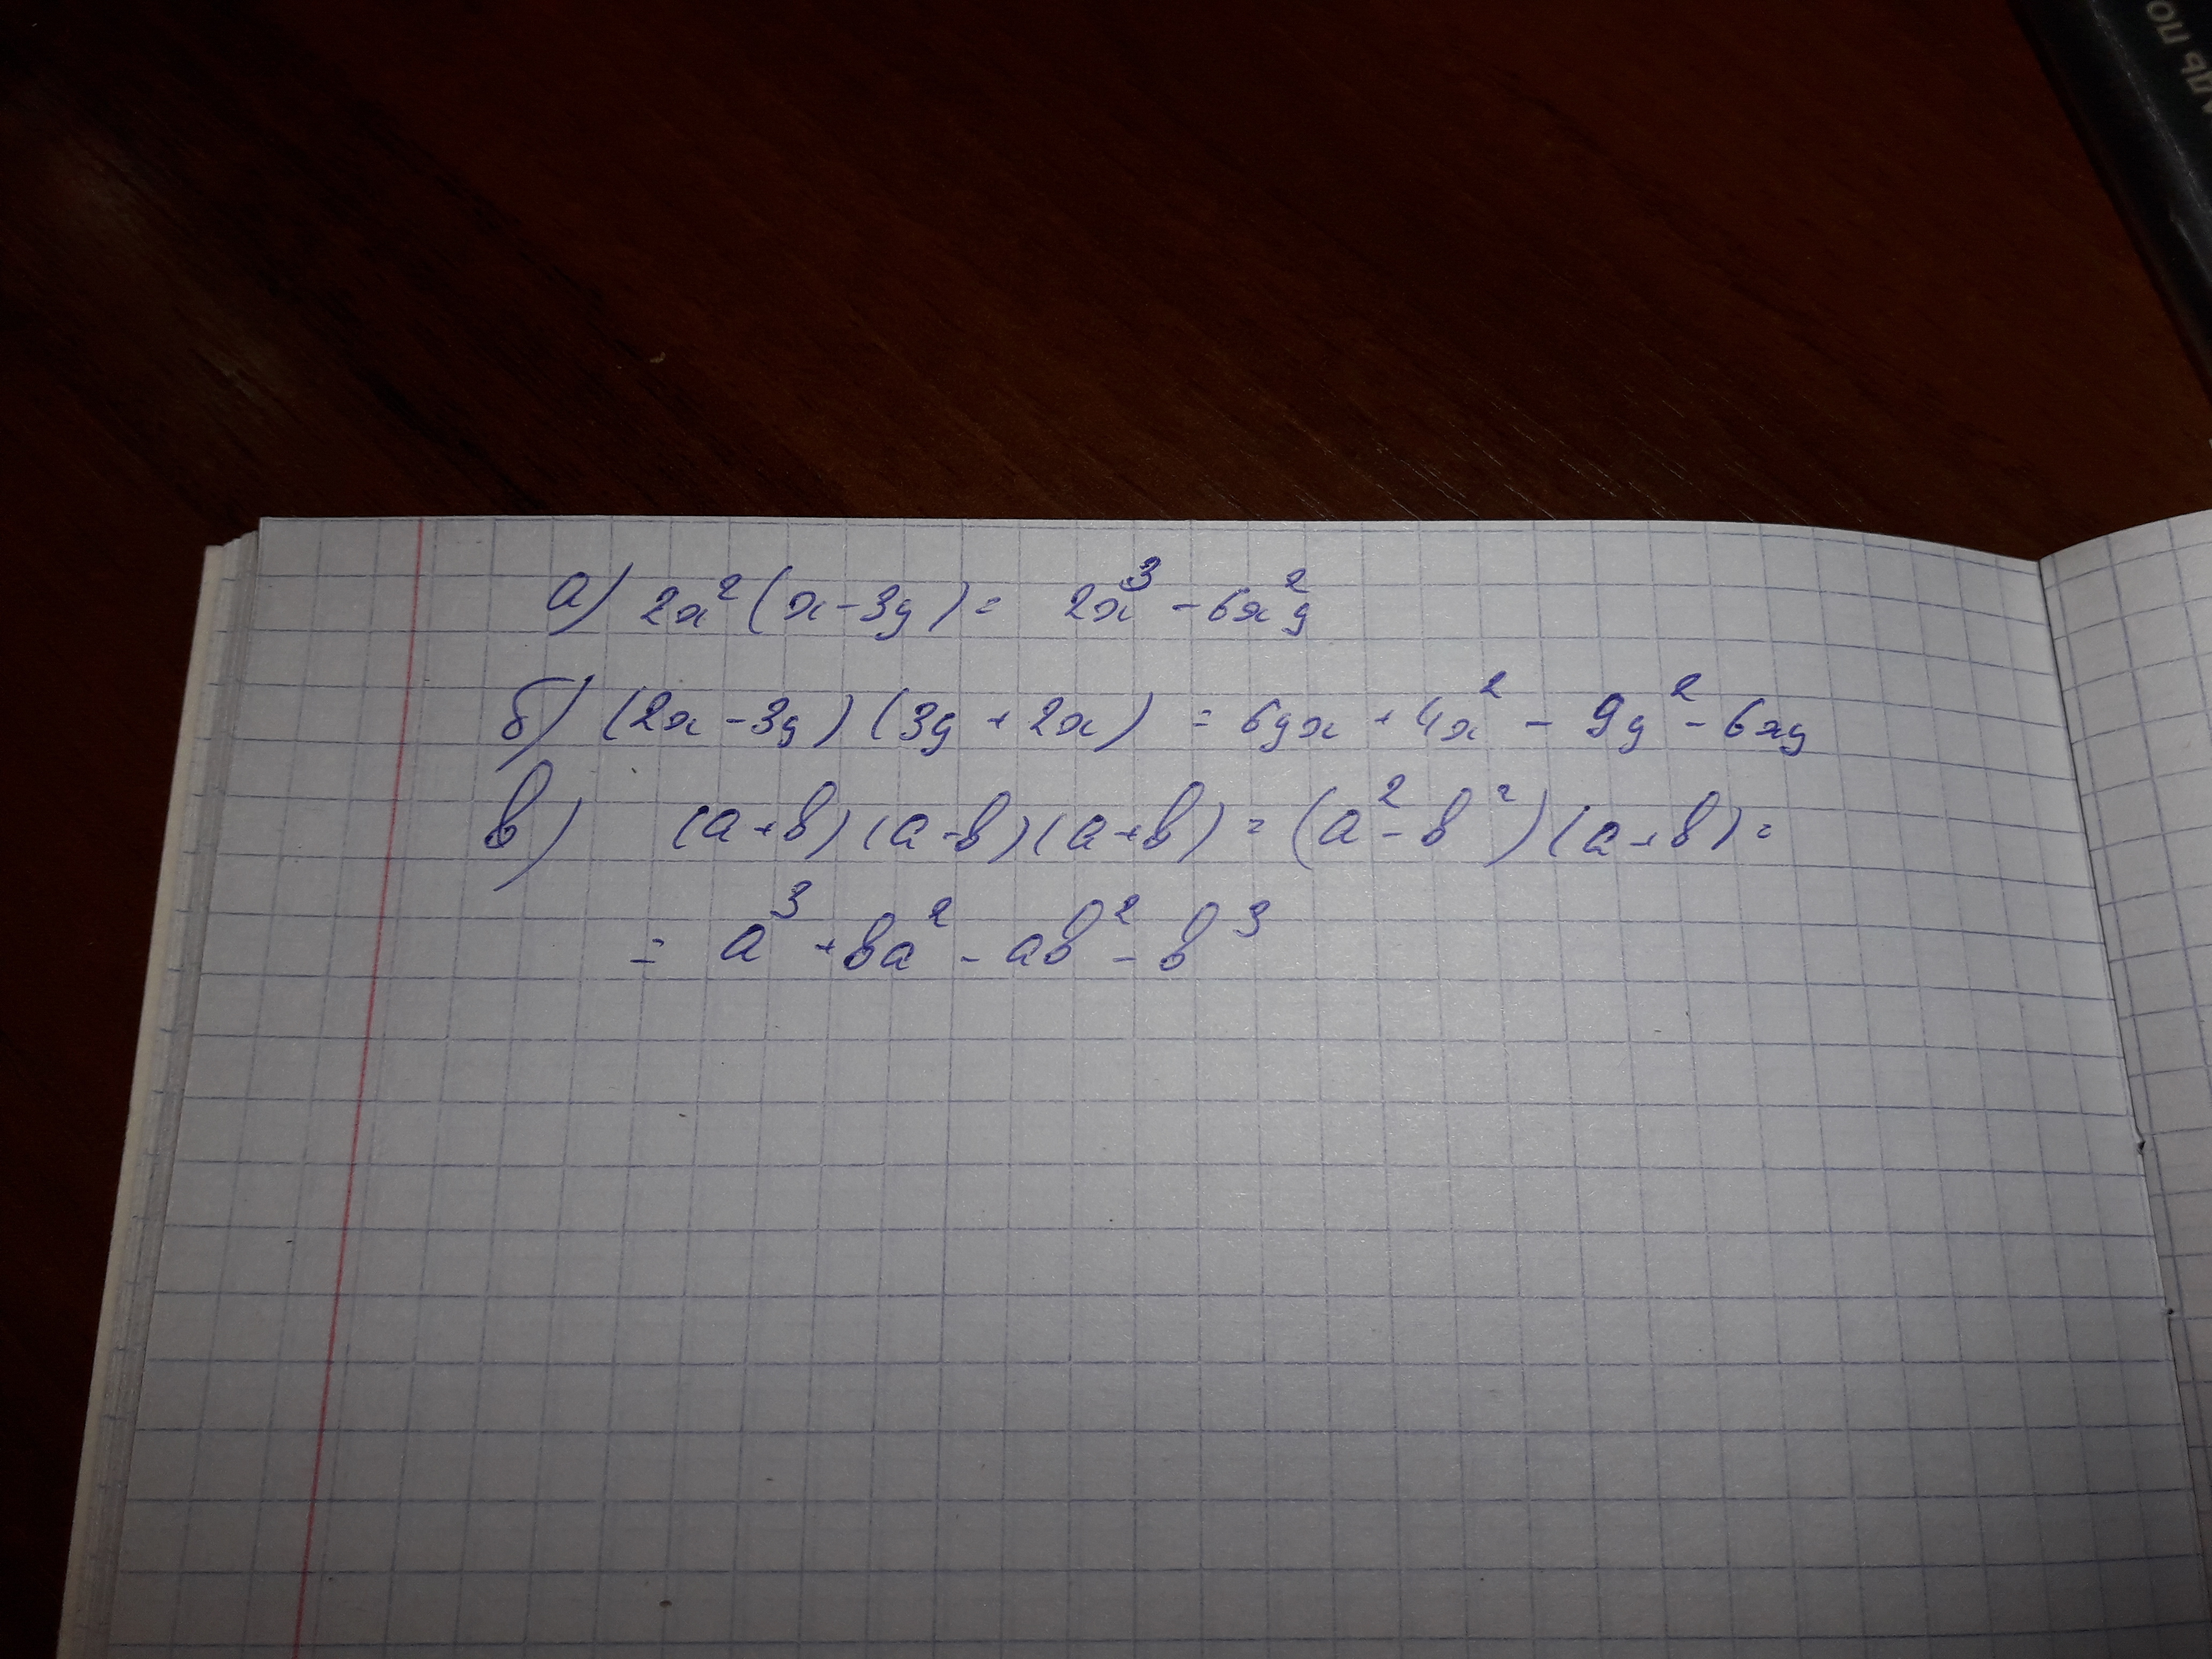 а) 2x²(x-3y)= 2x³-6x²y
б) (2x-3y)(3y+2x) = 6yx+4x²-9y²-6xy
в) (a+b)(a-b)(a+b)=(a²-b²)(a+b)=
= a³+ba²-ab²-b³